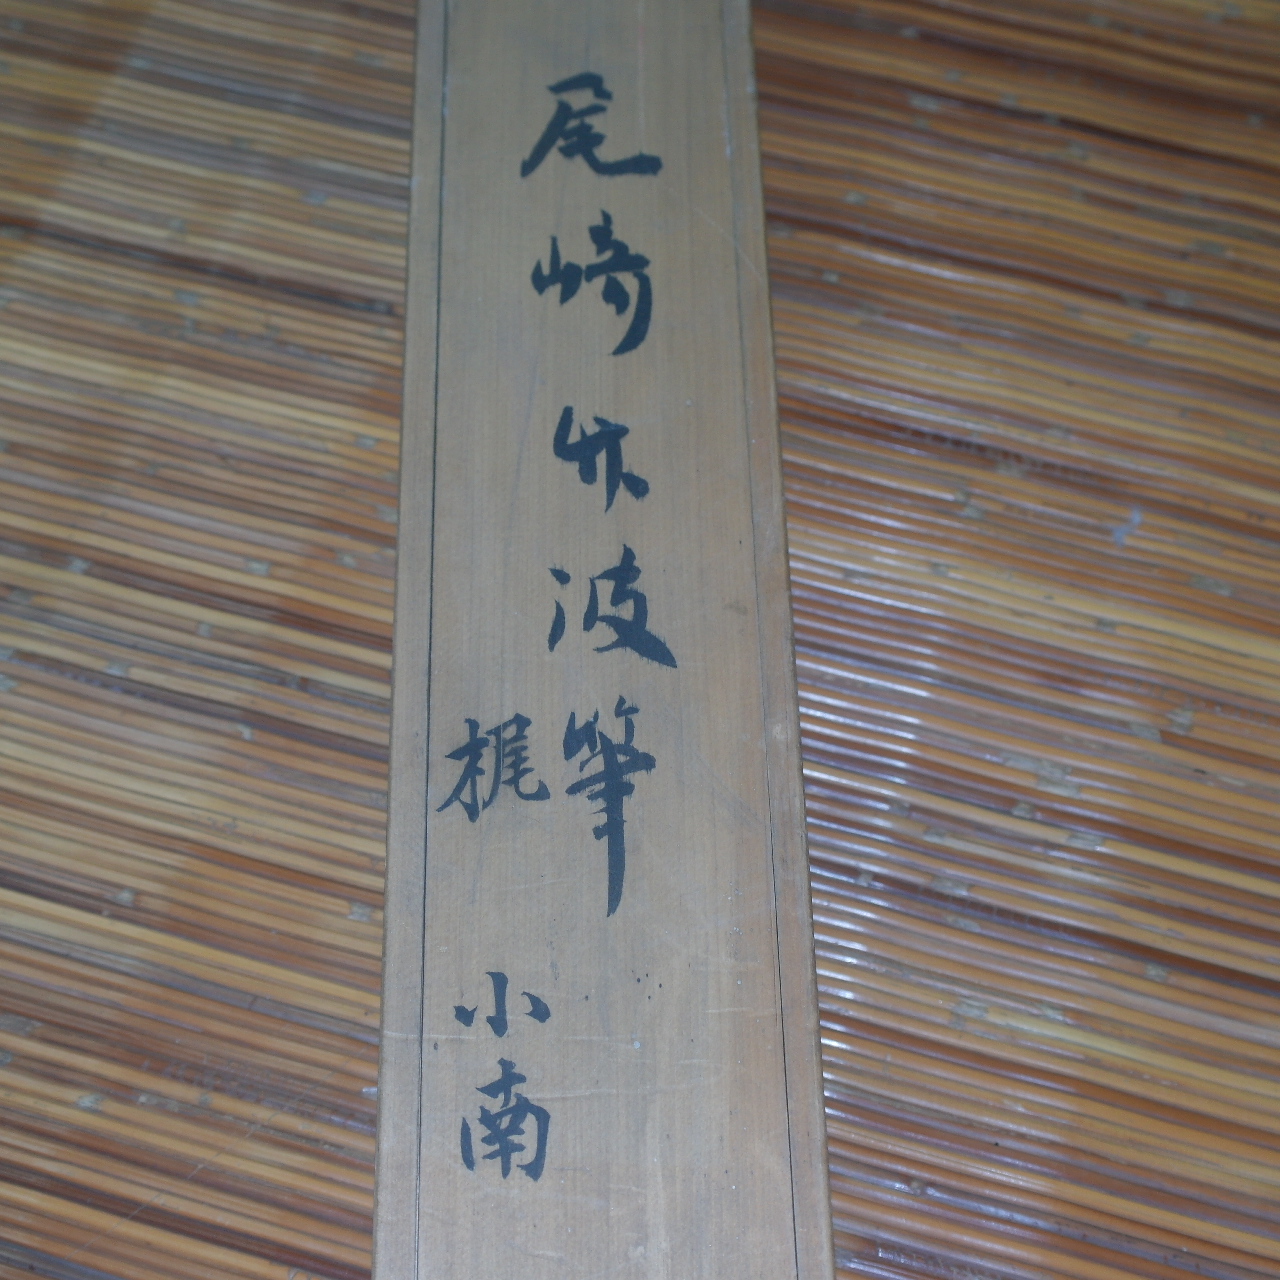 尾崎竹波筆
梶 小南